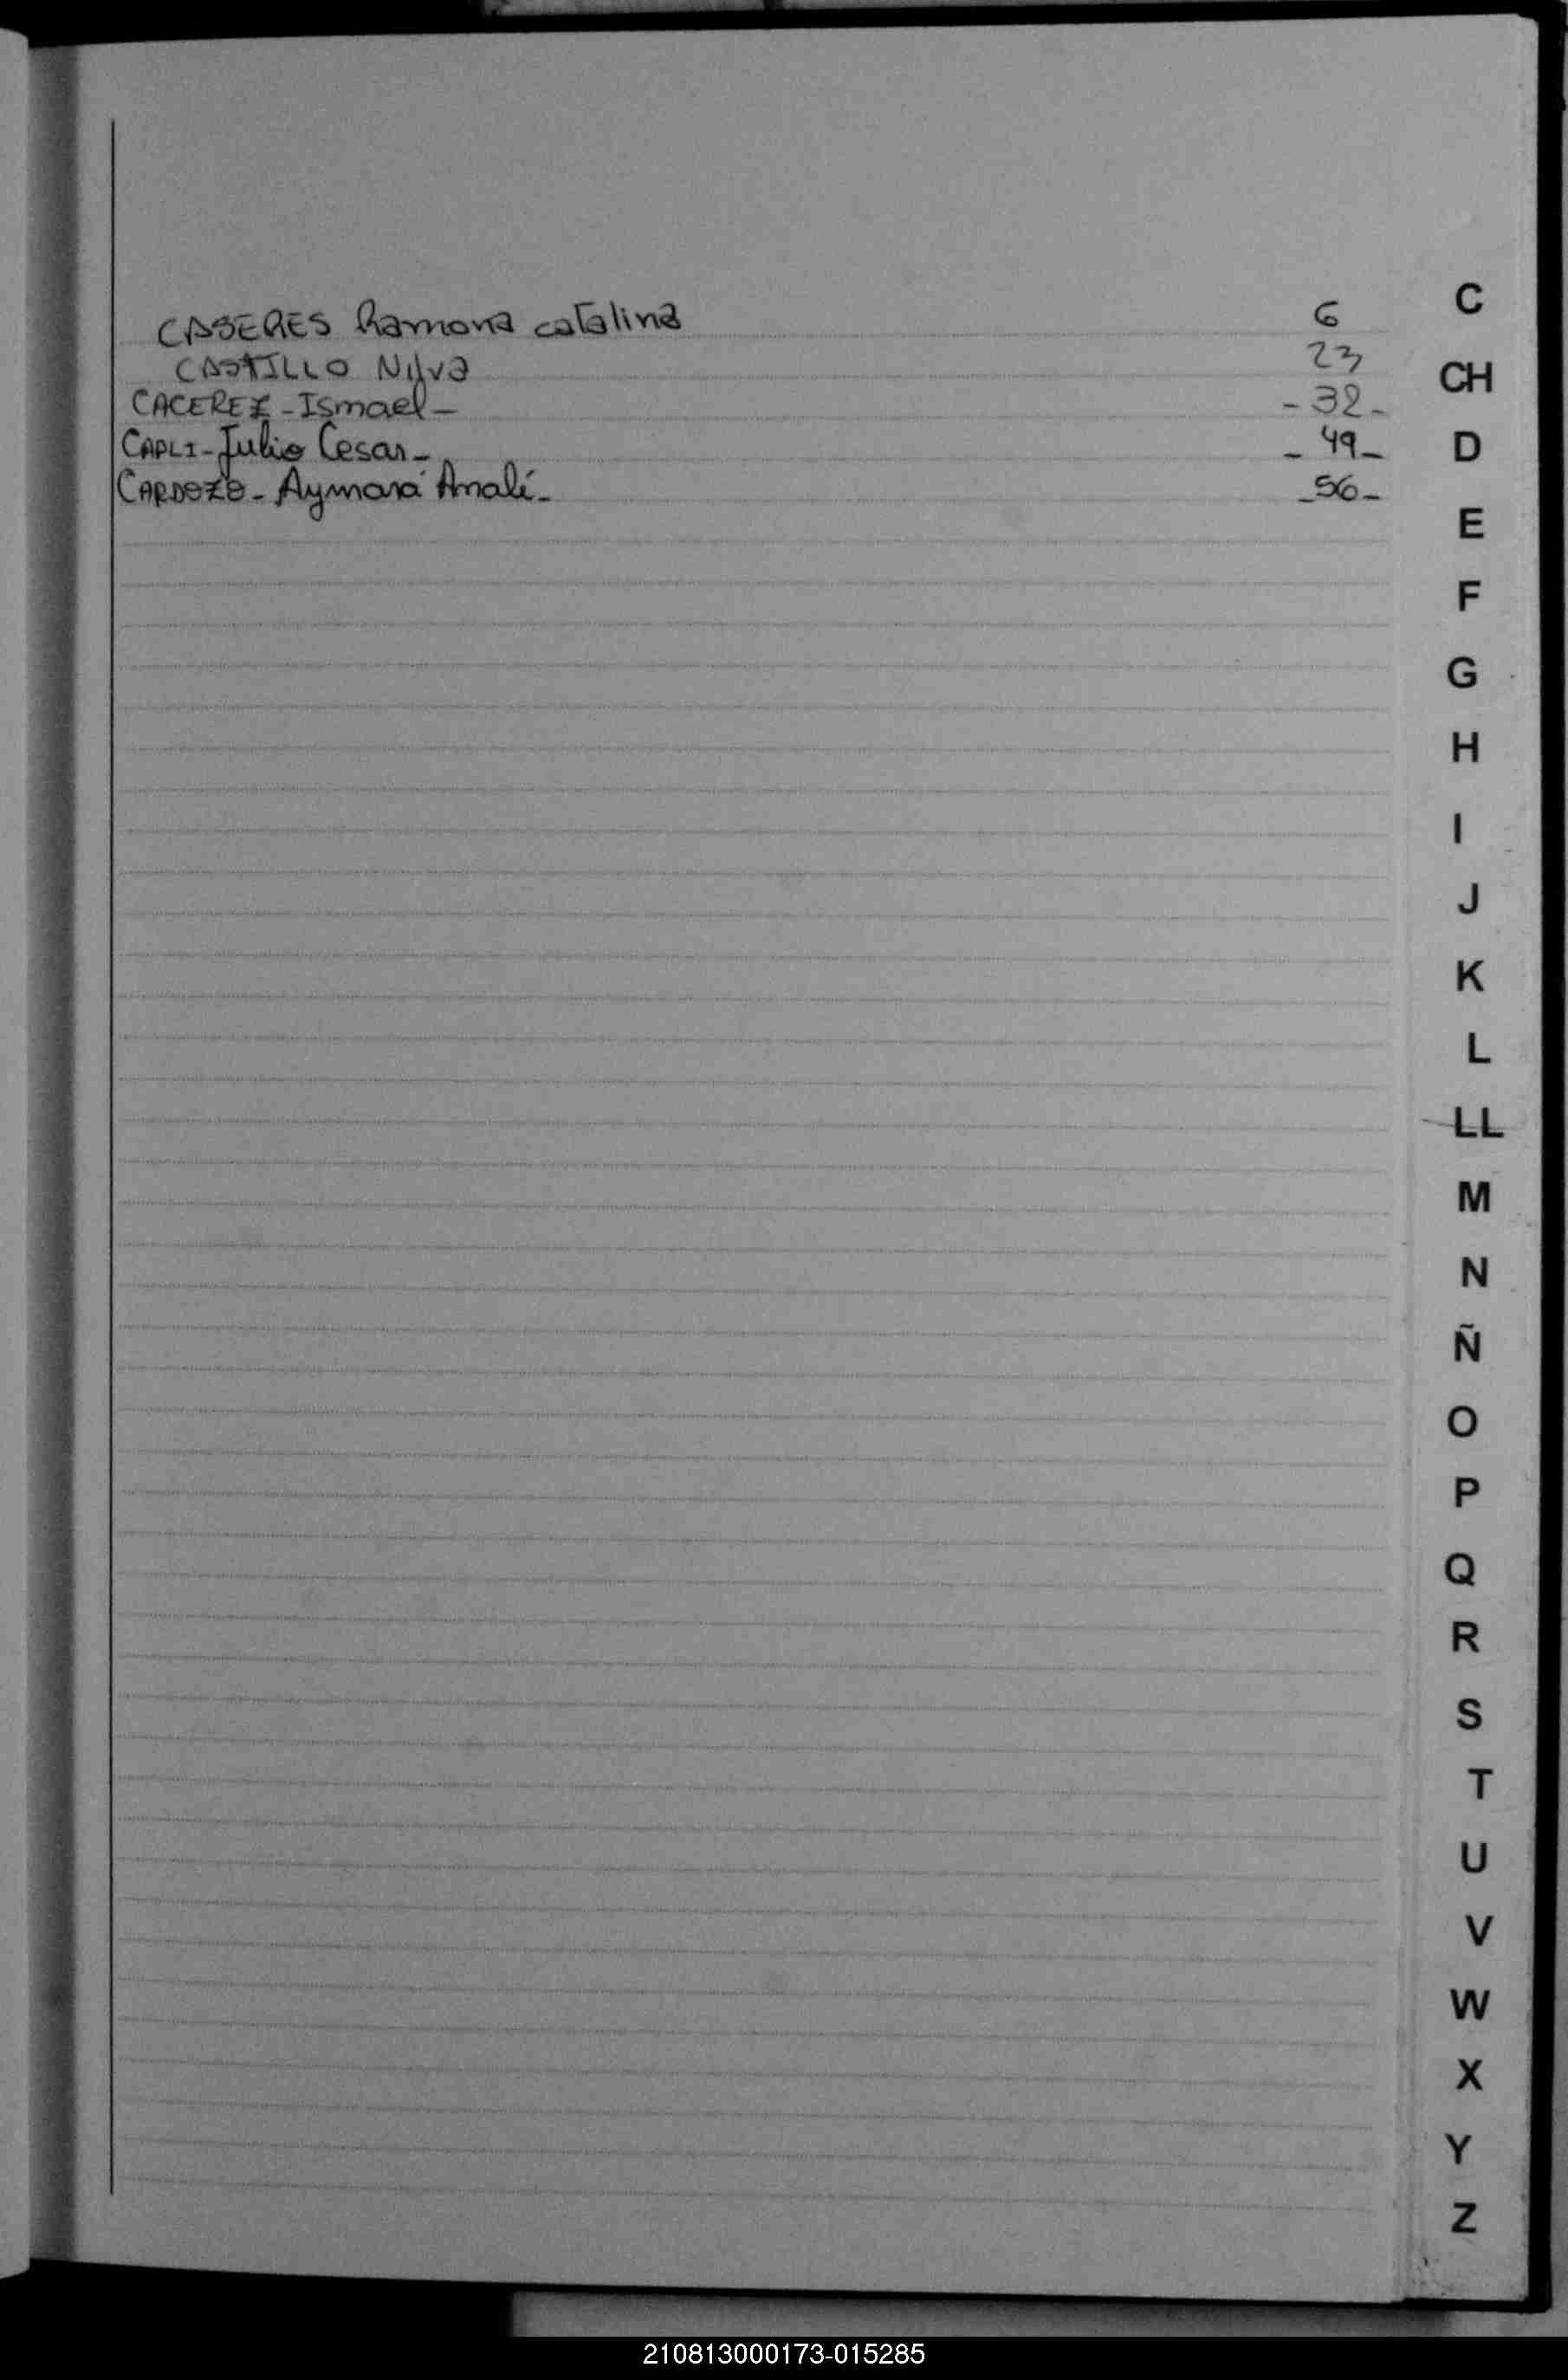 CASERES Ramona catalina 6
CASTILLO Nilva 23
CACEREZ - Ismael - - 32 -
CAPLI - Julio Cesar - - 49 -
CARDOZO - Aymará Analí - - 56 -
C
CH
D
E
F
G
H
I
J
K
L
LL
M
N
Ñ
O
P
Q
R
S
T
U
V
W
X
Y
Z
210813000173-015285